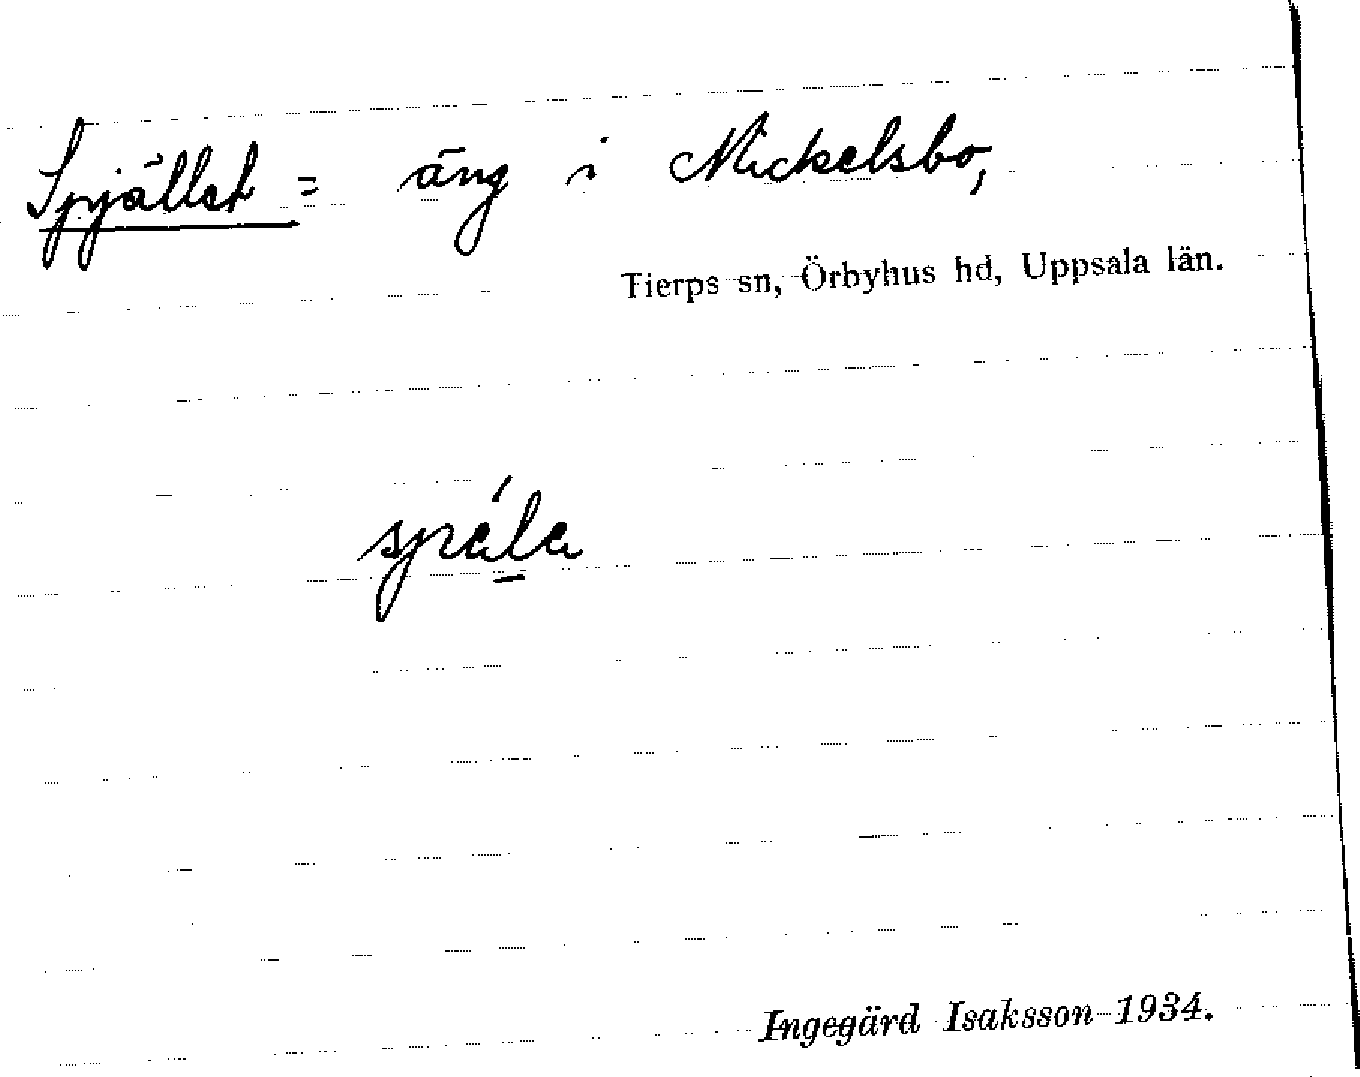 Spjället = äng i Mickelsbo,
Tierps sn, Örbyhus hd, Uppsala län.
Ingegärd Isaksson 1934.